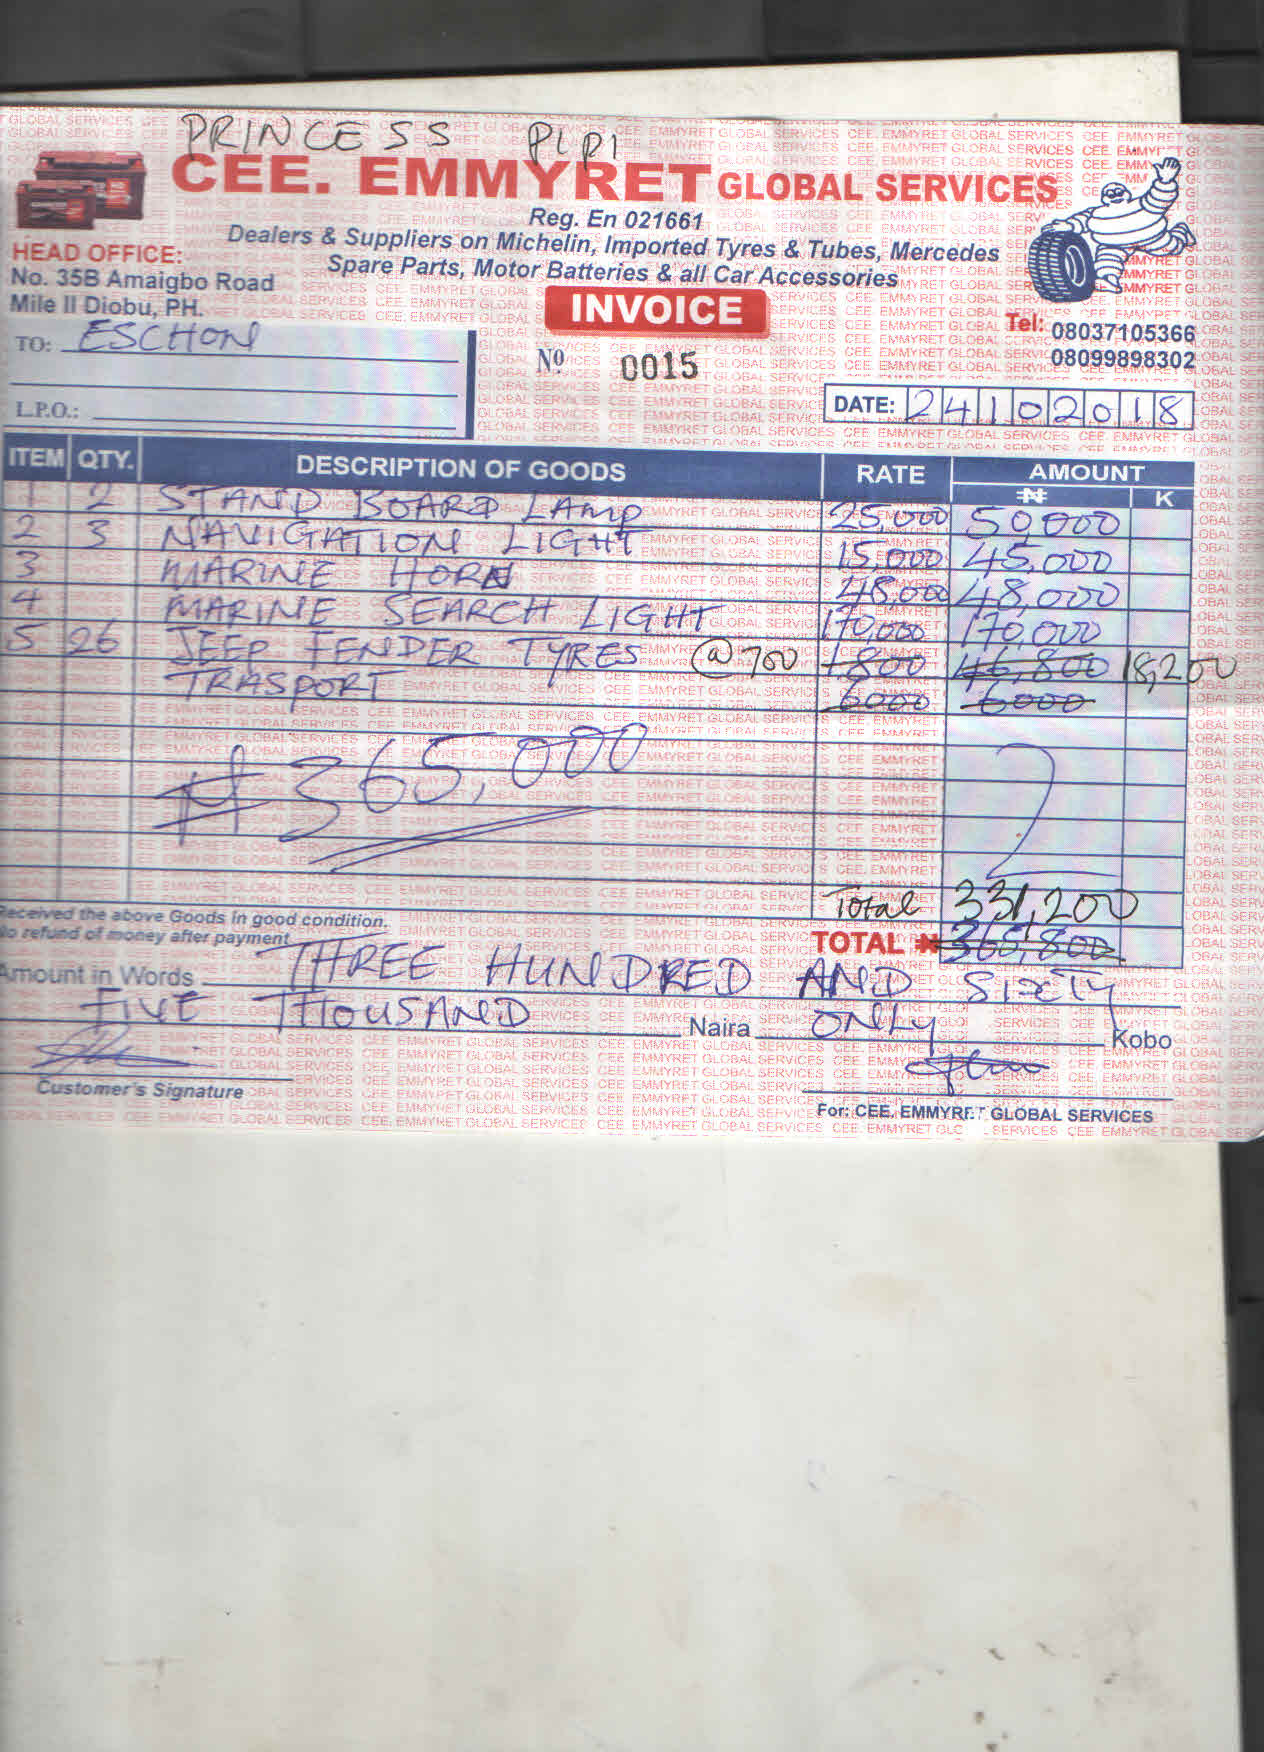 PRINCESS PIPI
CEE. EMMYRET GLOBAL SERVICES
Reg. En 021661
Dealers & Suppliers on Michelin, Imported Tyres & Tubes, Mercedes
Spare Parts, Motor Batteries & all Car Accessories
HEAD OFFICE:
No. 35B Amaigbo Road
Mile II Diobu, PH.
INVOICE
Tel: 08037105366
08099898302
TO: ESCHON
Nº 0015
L.P.O.:
DATE: 24102018
ITEM QTY. DESCRIPTION OF GOODS RATE AMOUNT
₦ K
1 2 STAND BOARD LAMP 25,000 50,000
2 3 NAVIGATION LIGHT 15,000 45,000
3 MARINE HORN 48,000 48,000
4 MARINE SEARCH LIGHT 170,000 170,000
5 26 JEEP FENDER TYRES @700 1800 46,800 18,200
TRASPORT 6000 6000
₦365,000
Total 331,200
Received the above Goods in good condition.
No refund of money after payment
TOTAL ₦ 365,800
Amount in Words THREE HUNDRED AND SIXTY
FIVE THOUSAND Naira ONLY Kobo
Customer's Signature
For: CEE. EMMYRET GLOBAL SERVICES